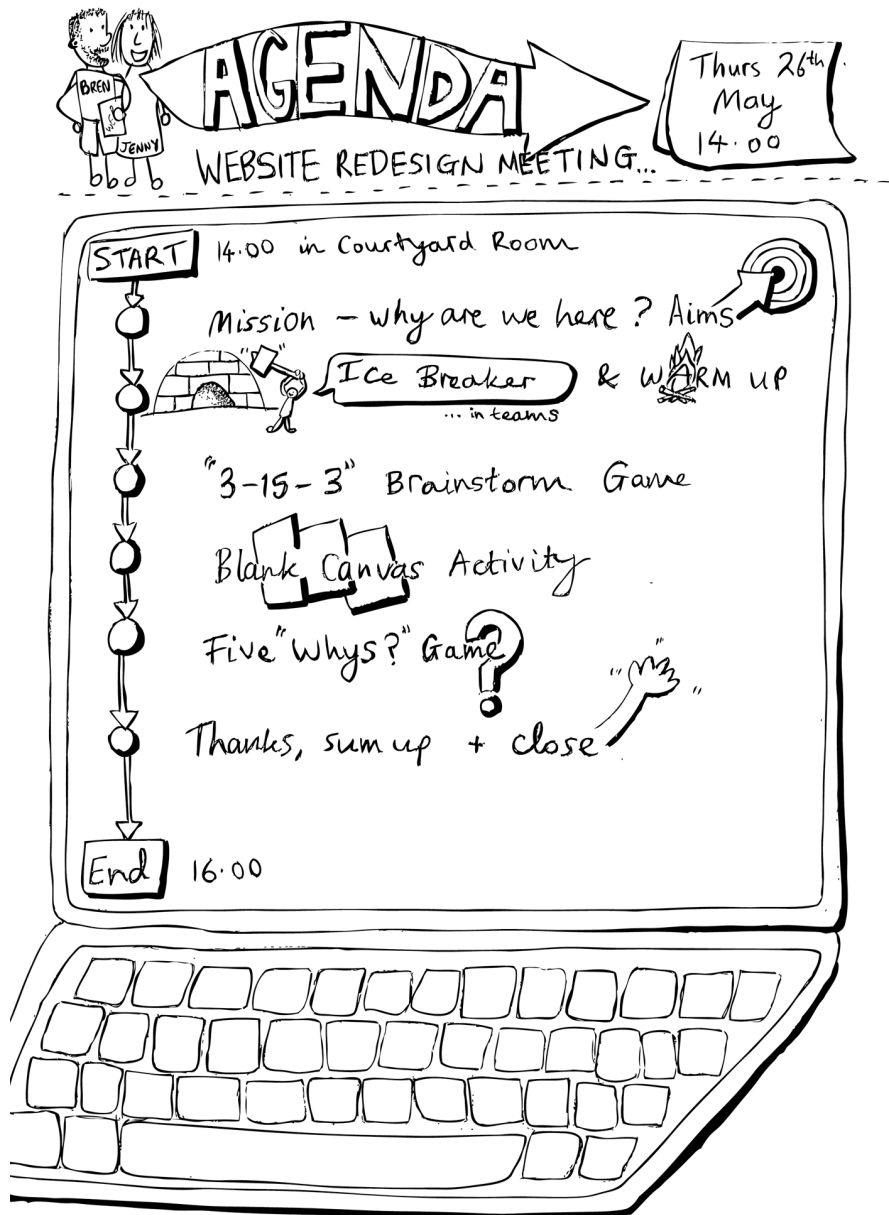 AGENDA
BREN
JENNY
WEBSITE REDESIGN MEETING...
Thurs 26th
May
14.00
START 14.00 in Courtyard Room
Mission - why are we here? Aims
Ice Breaker & WARM UP
... in teams
"3-15-3" Brainstorm Game
Blank Canvas Activity
Five "Whys?" Game
Thanks, sum up + close
End 16.00